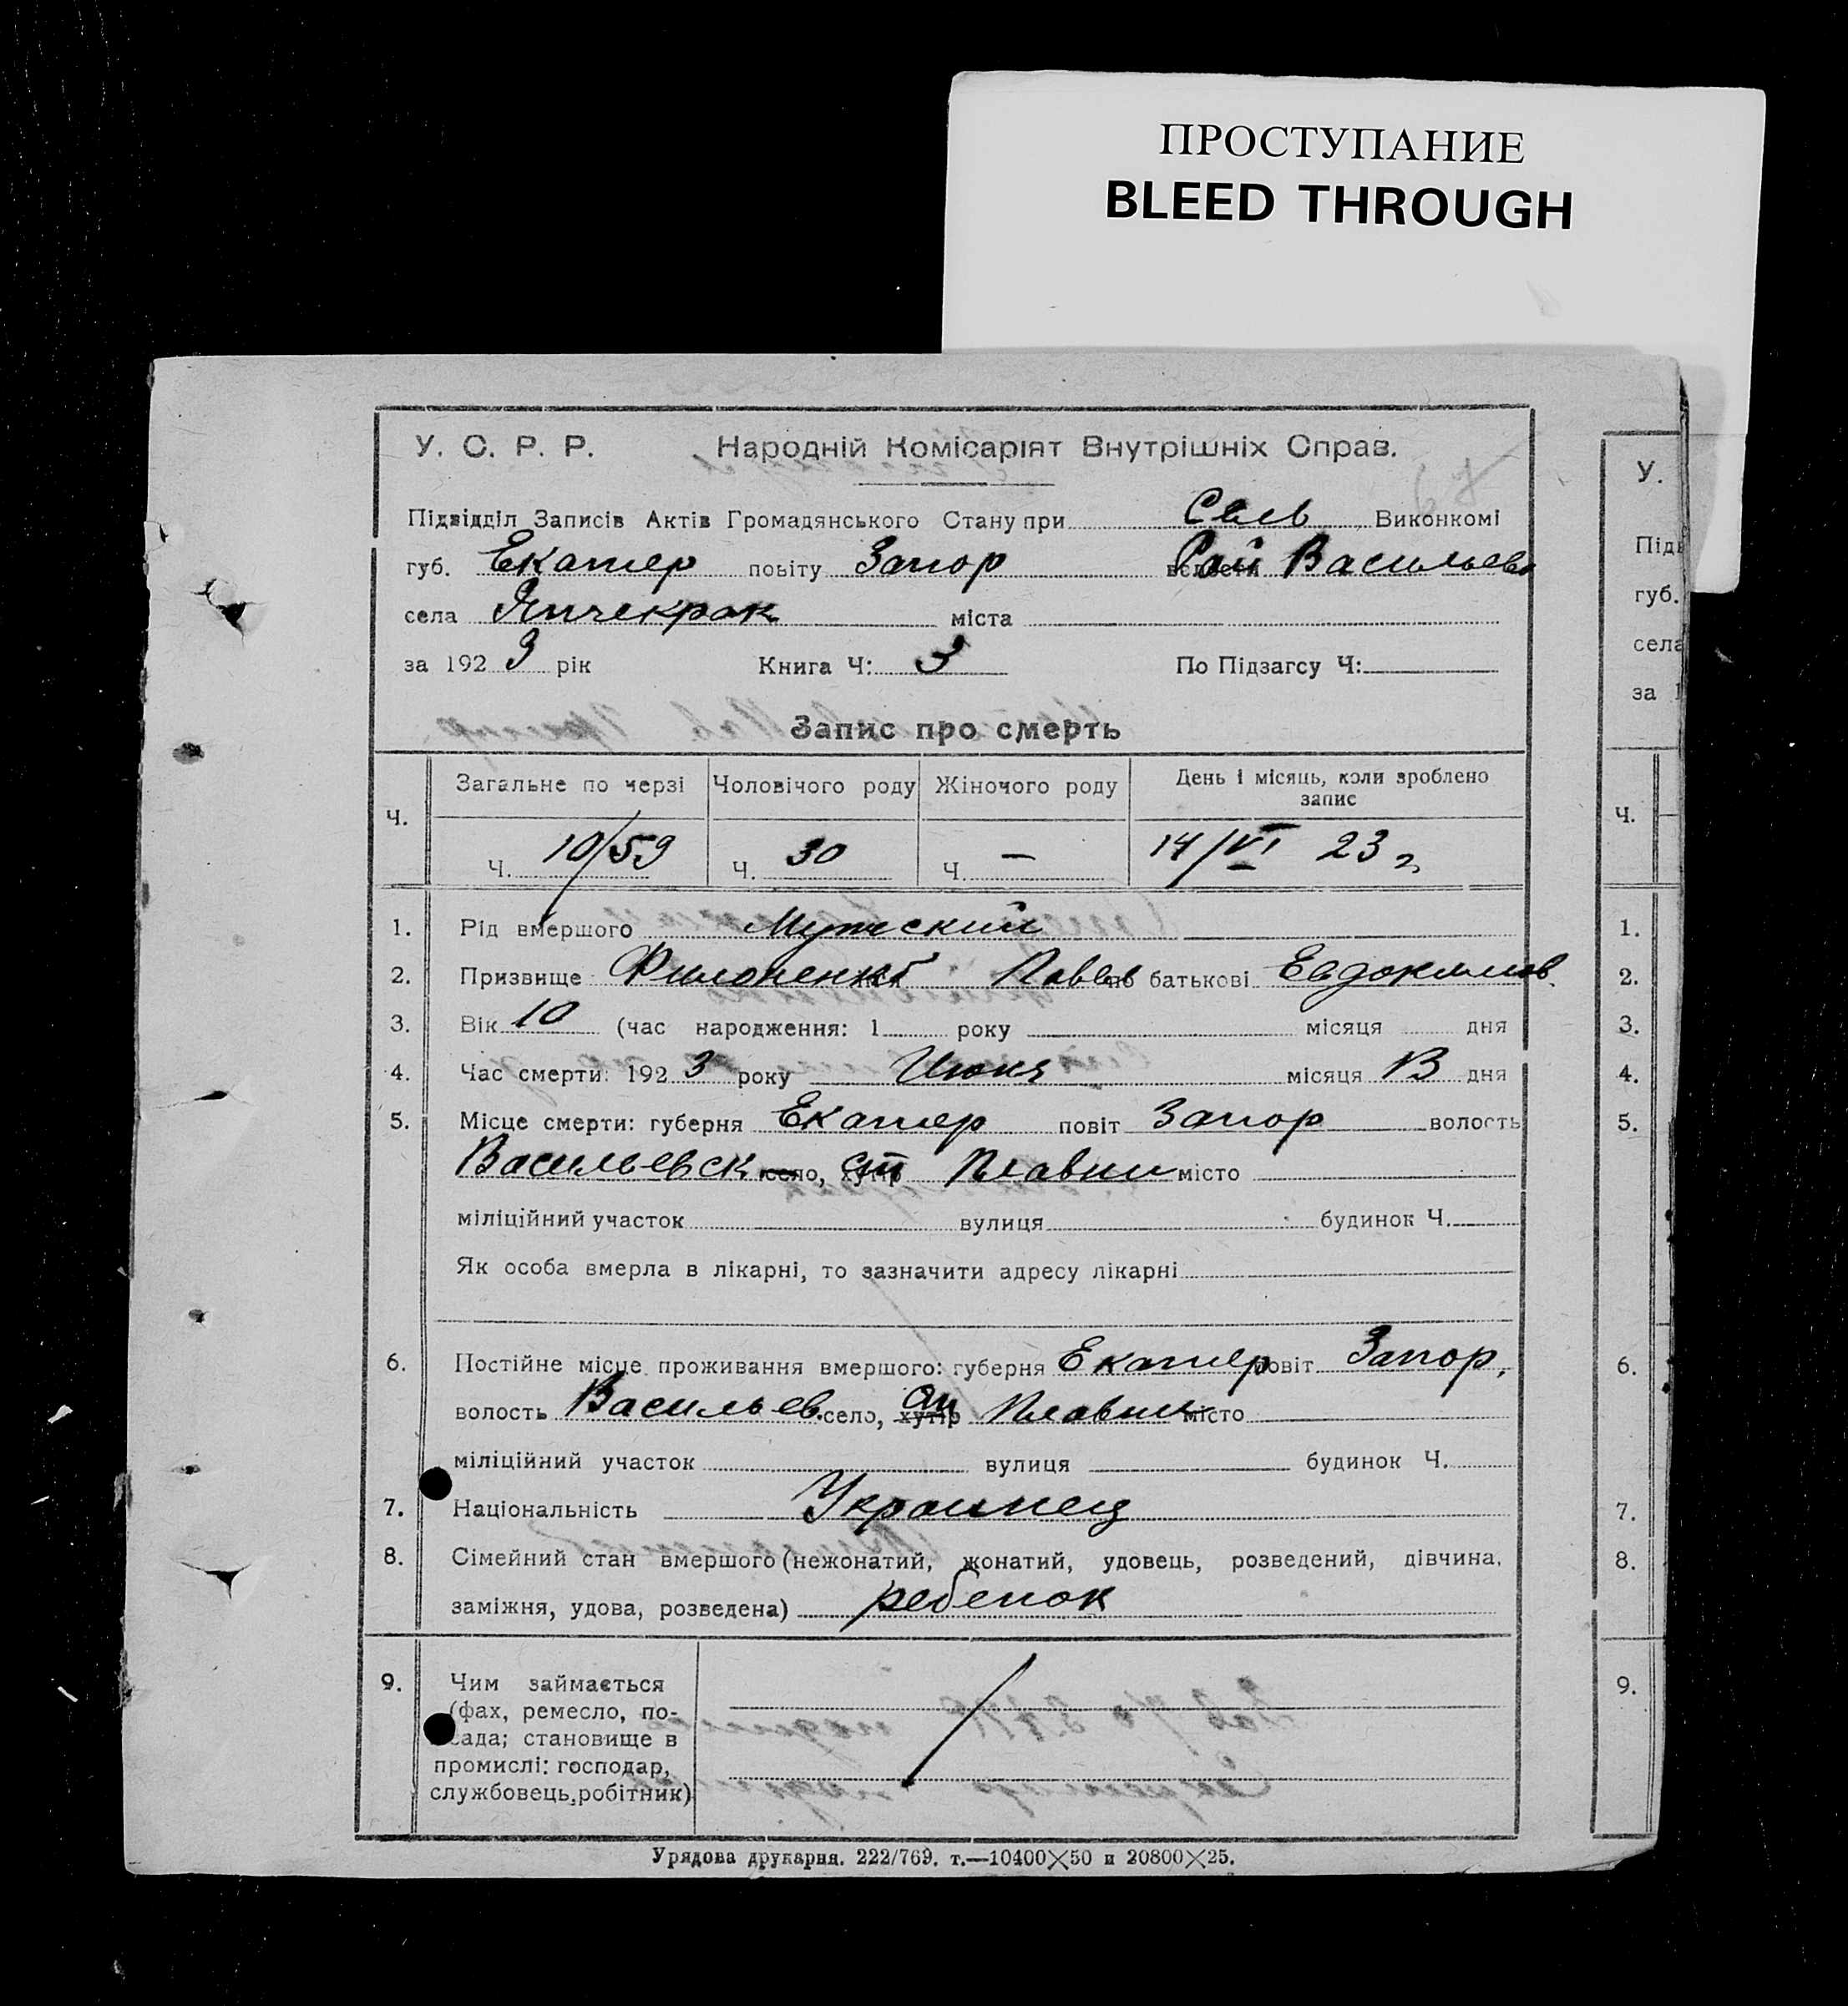 ПРОСТУПАНИЕ
BLEED THROUGH
У. С. Р. Р. Народній Комісаріят Внутрішніх Справ.
Підвідділ Записів Актів Громадянського Стану при Сель Виконкомі
губ. Екатер повіту Запор Рай Васильев
села Янчекрак міста
за 1923 рік Книга Ч: 3 По Підзагсу Ч:
Запис про смерть
Ч. Загальне по черзі Чоловічого роду Жіночого роду День і місяць, коли зроблено запис
Ч. 10/59 Ч. 30 Ч. — 14/VI 23 г
1. Рід вмершого Мужский
2. Призвище Филоненко Павел по батькові Евдокимов.
3. Вік 10 (час народження: 1 року місяця дня
4. Час смерти: 1923 року Июня місяця 13 дня
5. Місце смерти: губерня Екатер повіт Запор волость
Васильевск село, хутір ст Плавни місто
міліційний участок вулиця будинок Ч.
Як особа вмерла в лікарні, то зазначити адресу лікарні
6. Постійне місце проживання вмершого: губерня Екатер повіт Запор.
волость Васильев. село, хутір Плавни місто
міліційний участок вулиця будинок Ч.
7. Національність Украинец
8. Сімейний стан вмершого (нежонатий, жонатий, удовець, розведений, дівчина,
заміжня, удова, розведена) ребенок
9. Чим займається
(фах, ремесло, по-
сада; становище в
промислі: господар,
службовець, робітник)
Урядова друкарня. 222/769. т.—10400×50 и 20800×25.
У.
Підв
губ.
села
за 1
Ч.
1.
2.
3.
4.
5.
6.
7.
8.
9.